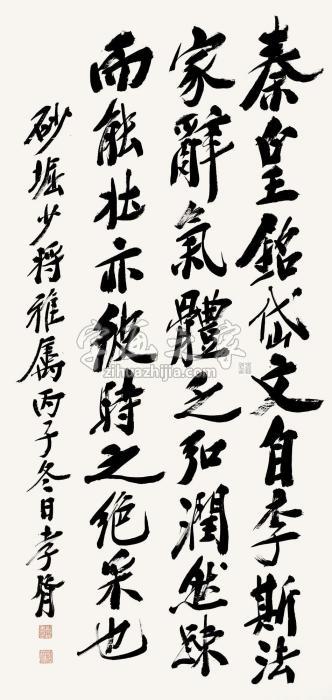 秦皇銘岱文自李斯法
家辭氣體乏弘潤然疎
而能壯亦彼時之絕采也
砂堀少将雅屬丙子冬日孝胥
zihuazhijia.com